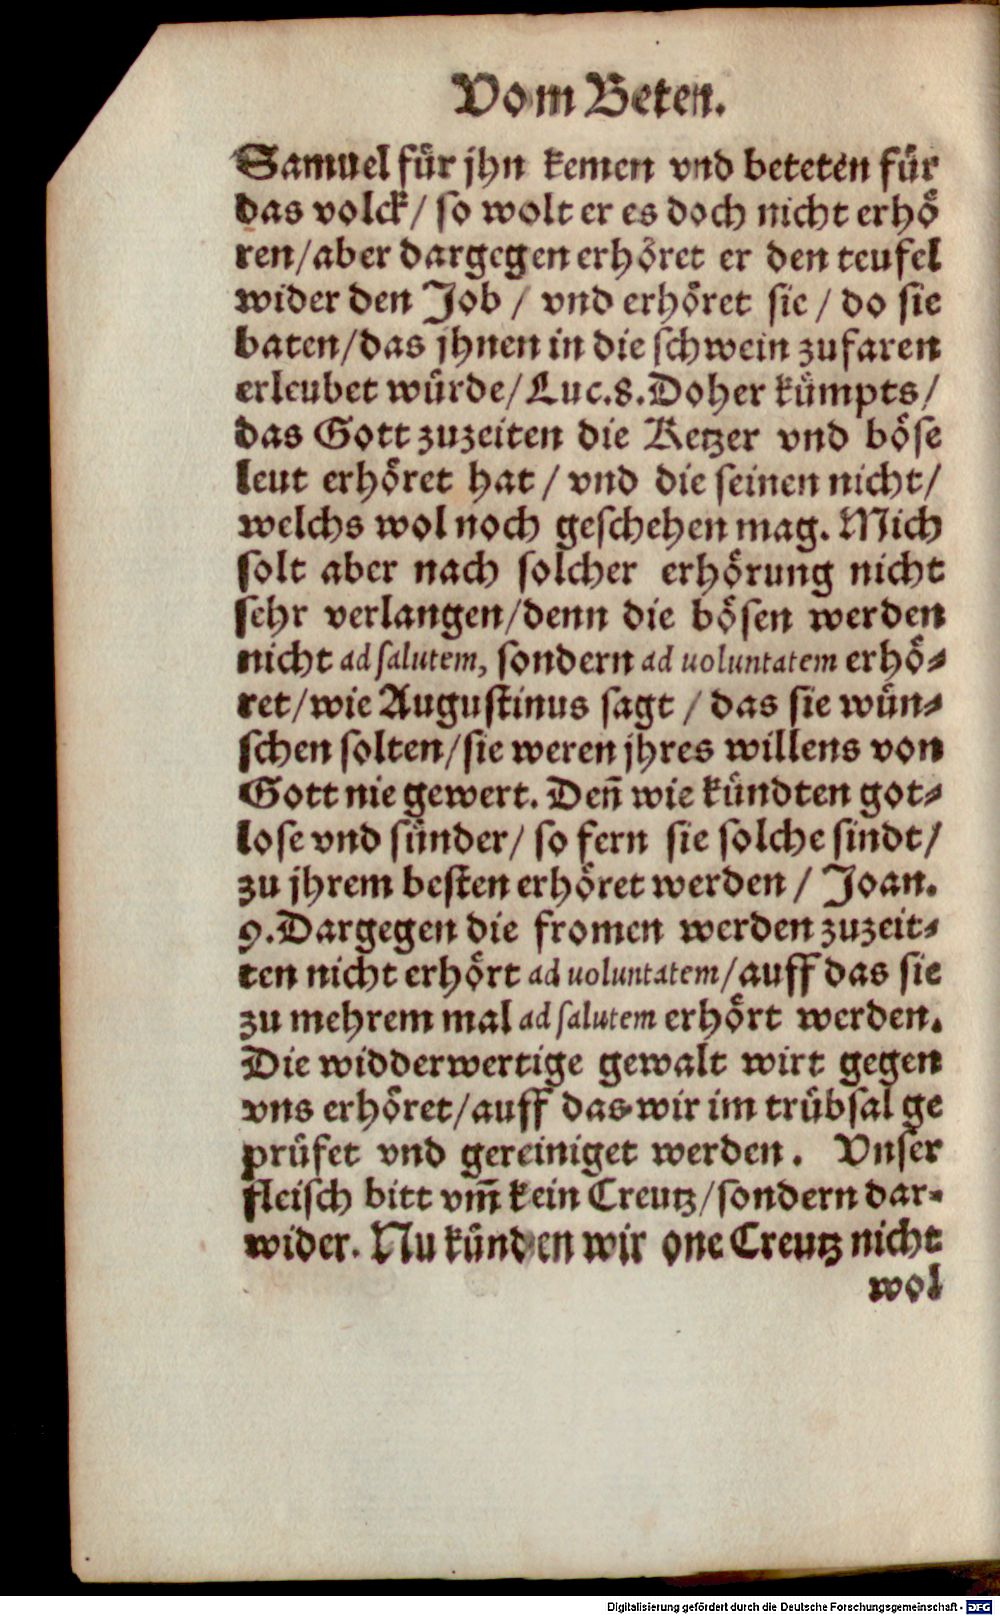 Vom Beten.
Samuel für jhn kemen vnd beteten für
das volck/ so wolt er es doch nicht erhö
ren/aber dargegen erhöret er den teufel
wider den Job / vnd erhöret sie / do sie
baten/das jhnen in die schwein zufaren
erleubet würde/ Luc.8.Doher kümpts/
das Gott zuzeiten die Ketzer vnd böse
leut erhöret hat / vnd die seinen nicht/
welchs wol noch geschehen mag. Mich
solt aber nach solcher erhörung nicht
sehr verlangen/denn die bösen werden
nicht ad salutem, sondern ad uoluntatem erhö-
ret/wie Augustinus sagt / das sie wün-
schen solten/sie weren jhres willens von
Gott nie gewert. Deñ wie kündten got-
lose vnd sünder/ so fern sie solche sindt/
zu jhrem besten erhöret werden / Joan.
9.Dargegen die fromen werden zuzeit-
ten nicht erhört ad uoluntatem/auff das sie
zu mehrem mal ad salutem erhört werden.
Die widderwertige gewalt wirt gegen
vns erhöret/auff das wir im trübsal ge
prüfet vnd gereiniget werden. Vnser
fleisch bitt vm̄ kein Creutz/sondern dar-
wider. Nu künden wir one Creutz nicht
wol
Digitalisierung gefördert durch die Deutsche Forschungsgemeinschaft - DFG